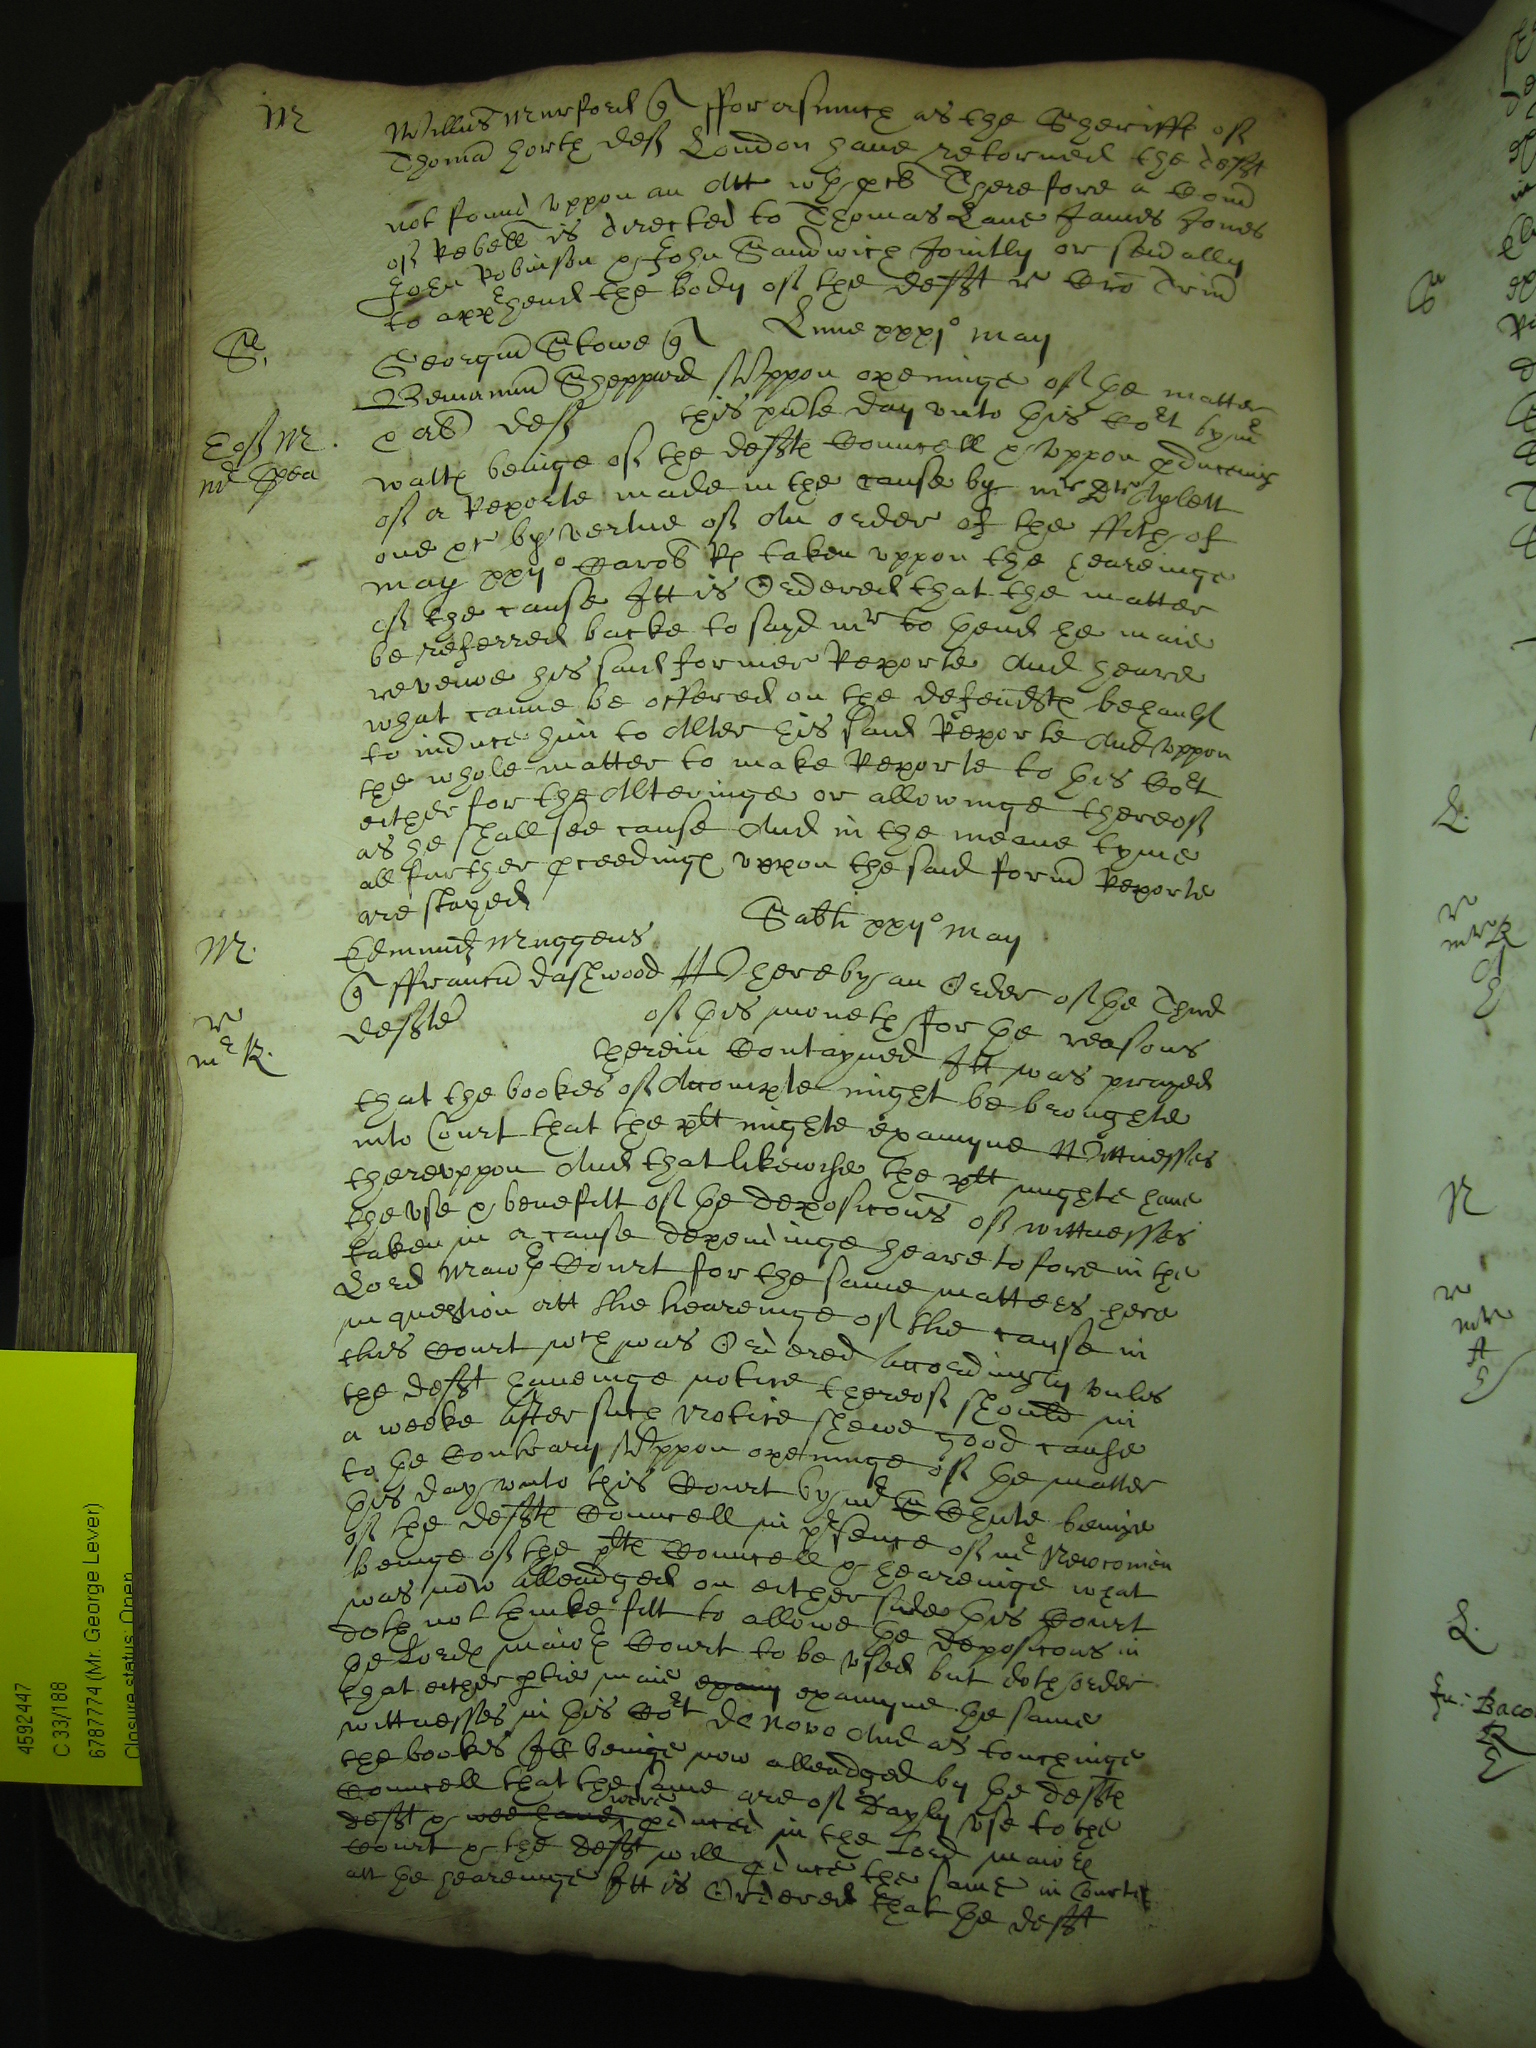 M Willus Murford q fforasmuch as the Sheriffe of
Thoma horth def London have retorned the deft
not found uppon an Att wth pcl Therefore a Com
of Rebell is directed to Thomas Lane James Jones
John Robinson & John Sandwich Jointly or sevally
to apphend the body of the deft
Lune xxxj° May
S. Georgiu Stowe q
Beniamin Sheppard Uppon openinge of the matter
def this pnte day unto this Cort by mr
walth beinge of the defts Councell & uppon pducing
of a Reporte made in the cause by mr Dr Aylett
one &c by vertue of An order of the ffith of
May xxij° Carol R taken uppon the heareinge
of the cause Itt is Ordered that the matter
be referred backe to sayd mr to thend he maie
reveiwe his said former Reporte And heare
what canne be offered on the defendts behaulf
to induce him to Alter his said Reporte And uppon
the whole matter to make Reporte to this Cort
either for the Alteringe or allowinge thereof
as he shall see cause And in the meane tyme
all further pceedings uppon the said formr Reporte
are stayed
Sabti xxij° May
M. Edmund Muggens
q ffrancis dashwood Whereby an Order of the Third
of this moneth for the reasons
therein Contayned Itt was prayed
mr R.
that the bookes of Accompte might be broughte
into Court that the plt mighte examyne Wittnesses
thereuppon And that likewise the plt mighte have
the use & benefitt of the deposicons of wittnesses
taken in a cause dependinge hearetofore in the
Lord Maiors Court for the same matters here
in question att the heareinge of the cause in
this Court wch was Ordered Accordingly unles
the deft haveinge notice thereof should in
a weeke After such Notice shewe good cause
to the Contrary Uppon openinge of the matter
this day unto this Court by mr Chute beinge
of the defts Councell in psence of mr Newcomen
beinge of the plts Councell & heareinge what
was now Alleadged on either side this Court
doth not thinke fitt to allowe the deposicons in
the Lord maiors Court to be used but doth order
that either ptie maie examyne the same
wittnesses in this Cort de novo And as touchinge
the bookes Itt beinge now alleadged by the defts
Councell that the same are of dayly use to the
deft & were pduced in the Lord maiors
Court & the deft will pduce the same in Courte
att the heareinge Itt is Ordered that the deft
4592447
C 33/188
67877774 (Mr. George Lever)
Closure status: Open